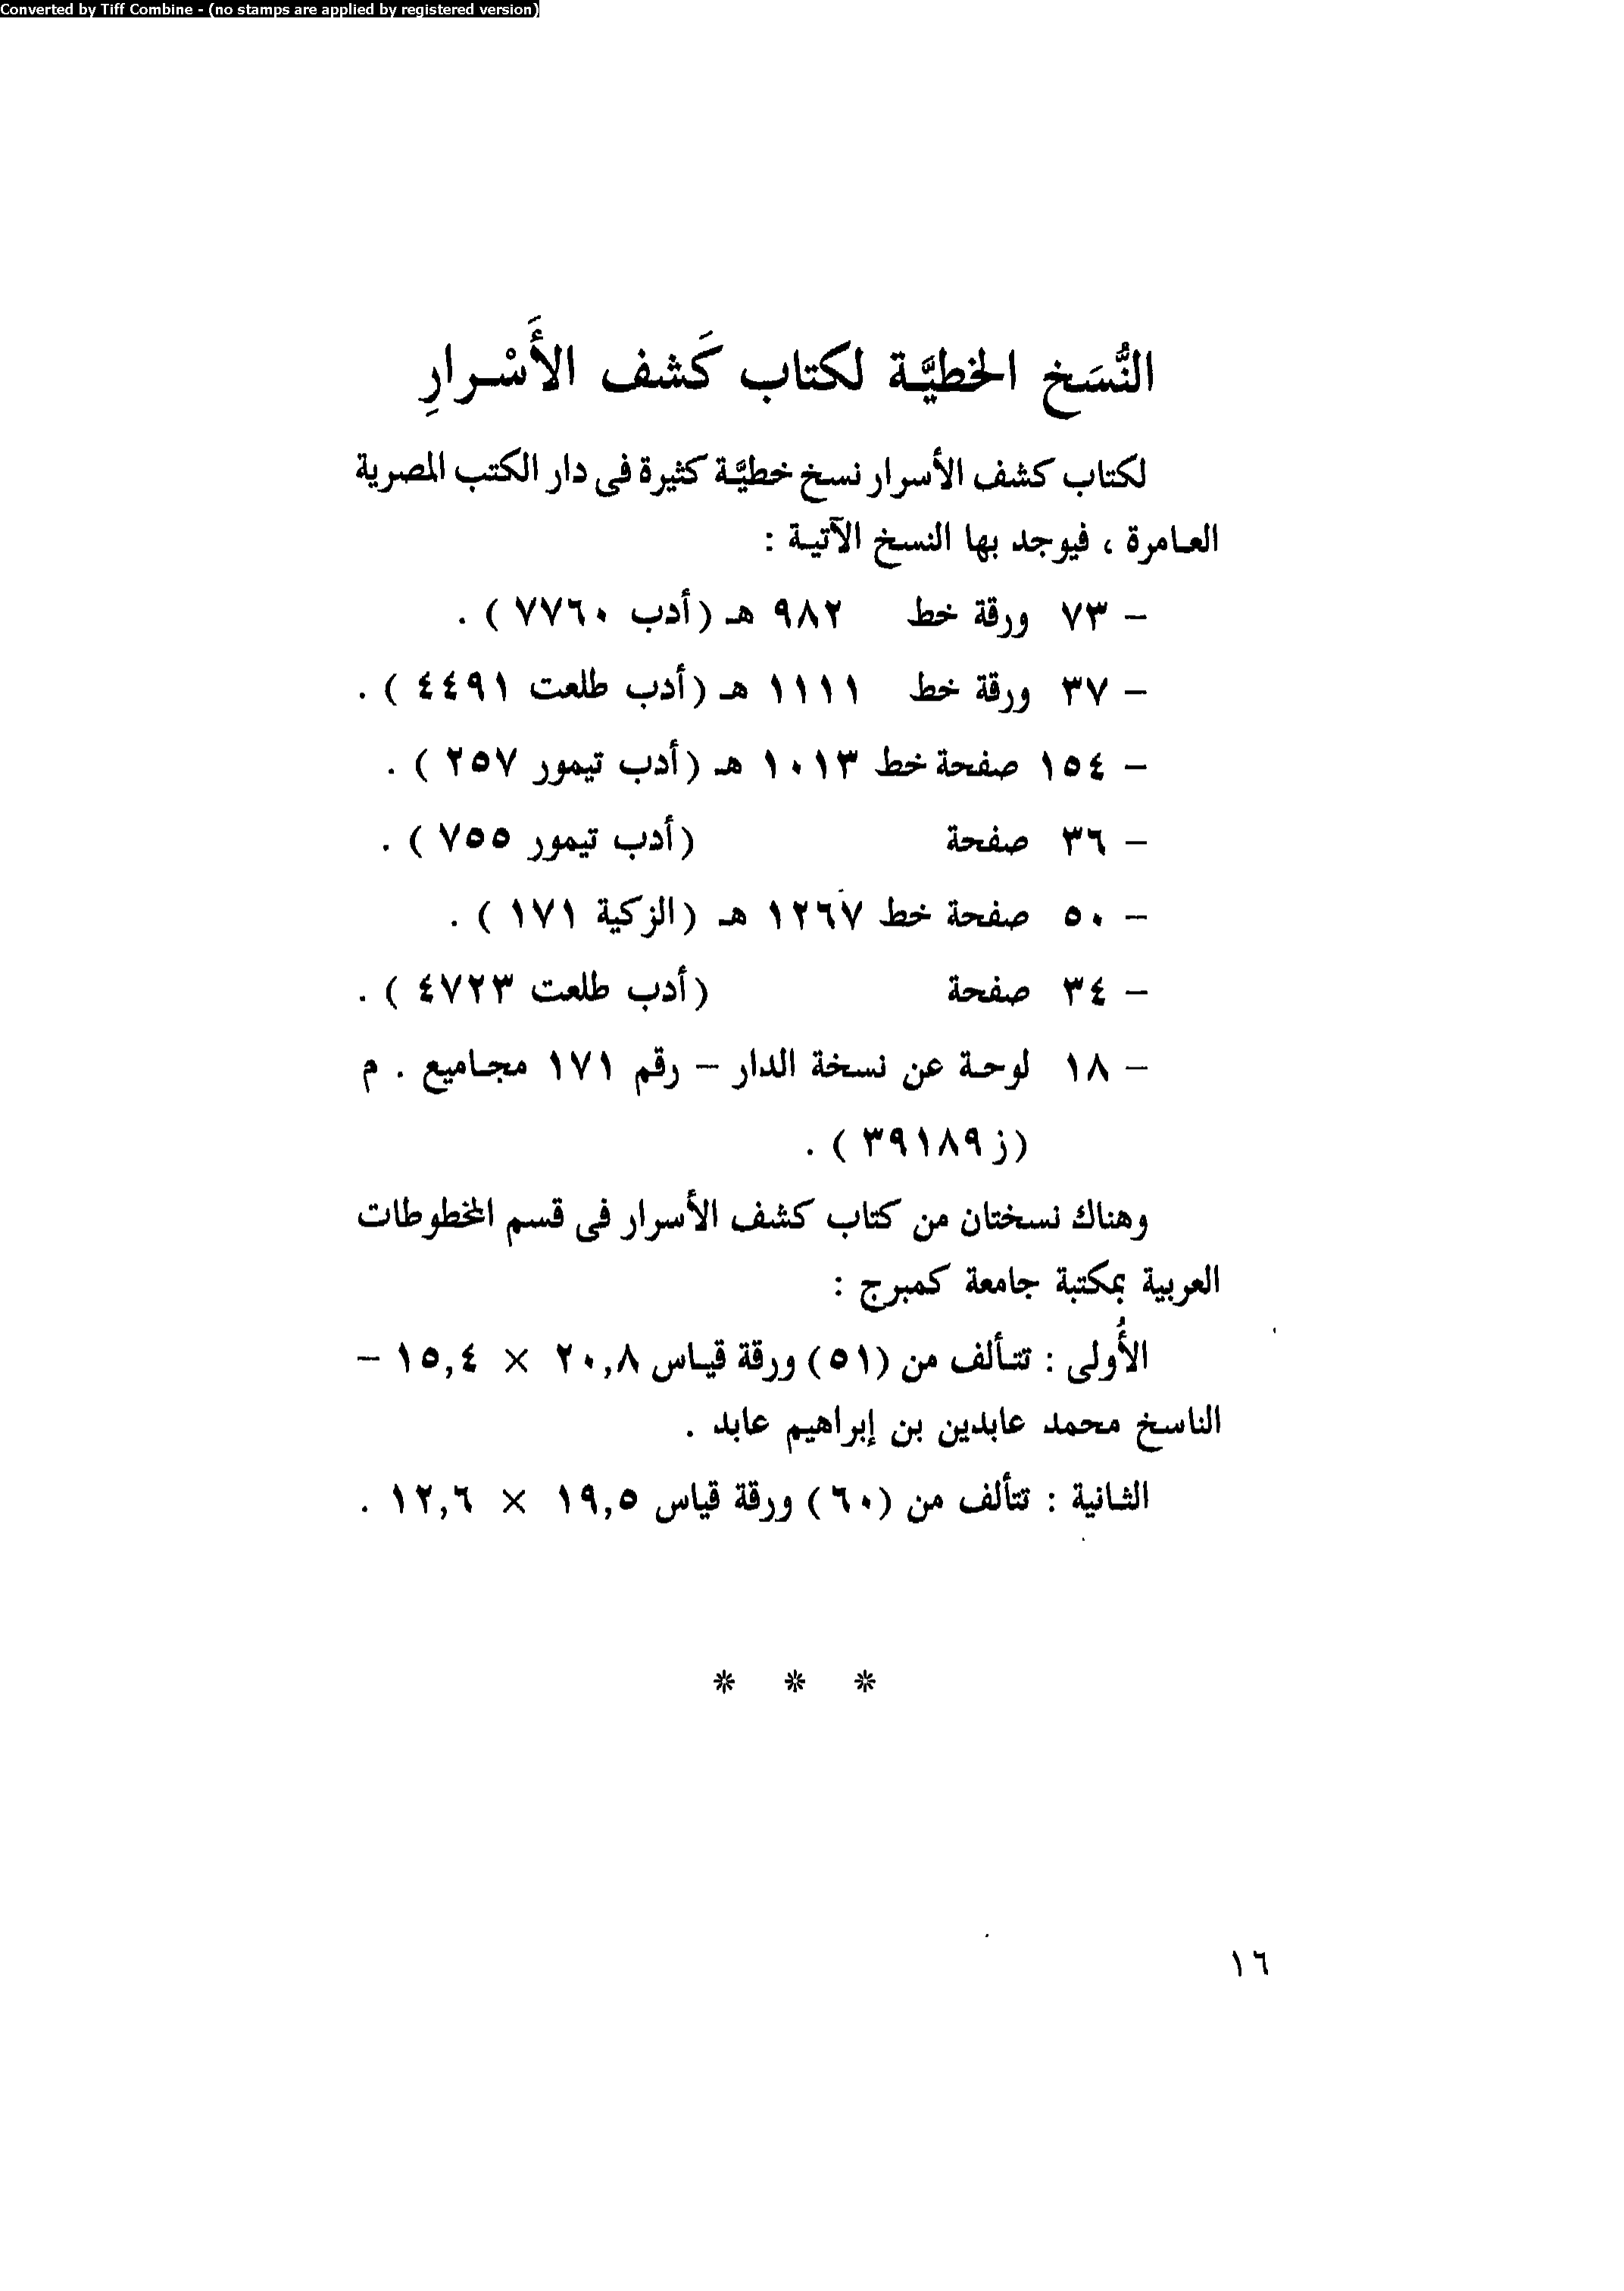 Converted by Tiff Combine - (no stamps are applied by registered version)
النُّسَخ الخطيَّة لكتاب كَشف الأَسْرارِ
لكتاب كشف الأسرار نسخ خطيَّة كثيرة فى دار الكتب المصرية
العامرة ، فيوجد بها النسخ الآتية :
– ٧٣ ورقة خط ٩٨٢ هـ (أدب ٧٧٦٠ ) .
– ٣٧ ورقة خط ١١١١ هـ (أدب طلعت ٤٤٩١ ) .
– ١٥٤ صفحة خط ١٠١٣ هـ (أدب تيمور ٢٥٧ ) .
– ٣٦ صفحة (أدب تيمور ٧٥٥ ) .
– ٥٠ صفحة خط ١٢٦٧ هـ (الزكية ١٧١ ) .
– ٣٤ صفحة (أدب طلعت ٤٧٢٣ ) .
– ١٨ لوحة عن نسخة الدار – رقم ١٧١ مجاميع . م
(ز ٣٩١٨٩ ) .
وهناك نسختان من كتاب كشف الأسرار فى قسم المخطوطات
العربية بمكتبة جامعة كمبرج :
الأُولى : تتألف من (٥١) ورقة قياس ٢٠,٨ × ١٥,٤ –
الناسخ محمد عابدين بن إبراهيم عابد .
الثانية : تتألف من (٦٠) ورقة قياس ١٩,٥ × ١٢,٦ .
* * *
١٦